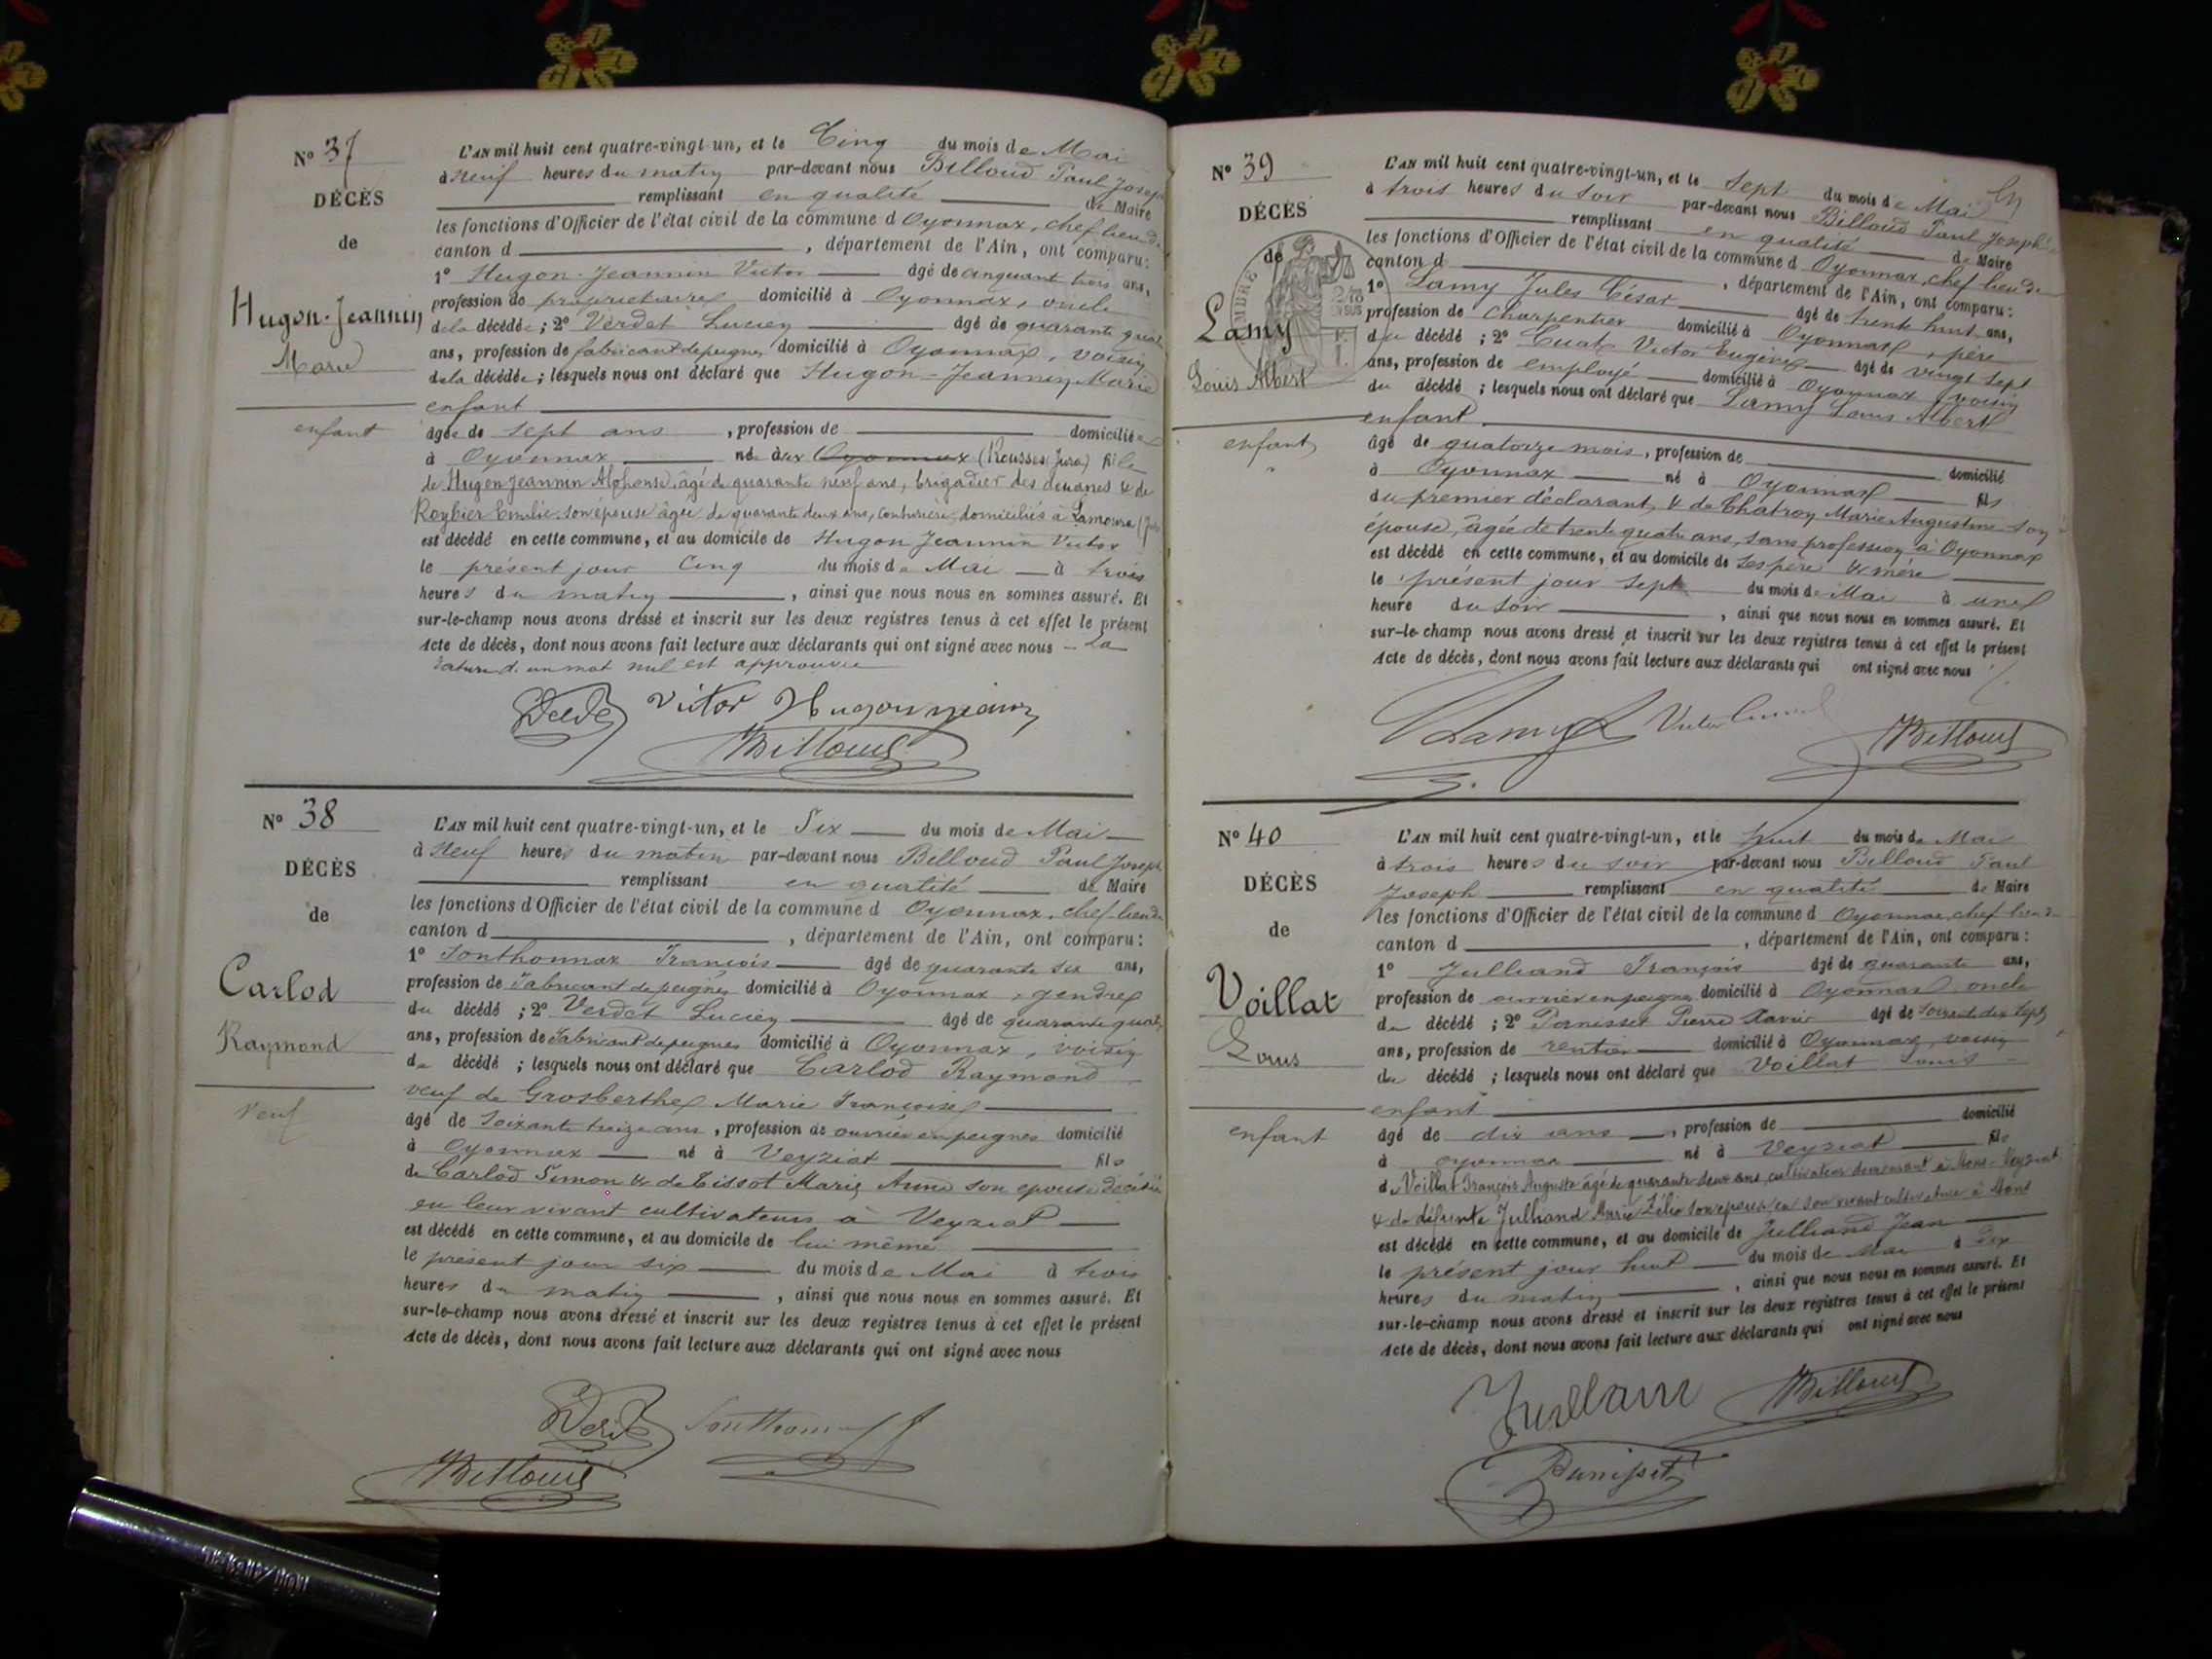 N° 37
DÉCÈS
de
Hugon-Jeannin
Marie
enfant
L'AN mil huit cent quatre-vingt-un, et le Cinq du mois de Mai
à Neuf heures du matin par-devant nous Billoud Paul Joseph
remplissant en qualité de Maire
les fonctions d'Officier de l'état civil de la commune d Oyonnax, chef lieu de
canton d , département de l'Ain, ont comparu:
1° Hugon-Jeannin Victor âgé de cinquant trois ans,
profession de propriétaire domicilié à Oyonnax, oncle
de la décédée; 2° Verdet Lucien âgé de quarante quatre
ans, profession de fabricant de peignes domicilié à Oyonnax, voisin
de la décédée; lesquels nous ont déclaré que Hugon-Jeannin Marie
enfant
âgée de sept ans , profession de domiciliée
à Oyonnax née aux Oyonnax (Rousses Jura) fille
de Hugon Jeannin Alphonse, âgé de quarante neuf ans, brigadier des douanes & de
Roybier Emilie son épouse âgée de quarante deux ans, couturière, domiciliés à Lamoura (Jura
est décédé en cette commune, et au domicile de Hugon Jeannin Victor
le présent jour Cinq du mois de Mai à trois
heures du matin , ainsi que nous nous en sommes assuré. Et
sur-le-champ nous avons dressé et inscrit sur les deux registres tenus à cet effet le présent
Acte de décès, dont nous avons fait lecture aux déclarants qui ont signé avec nous - La
rature d'un mot nul est approuvée
Victor Hugonnjeanin
Billoud
N° 38
DÉCÈS
de
Carlod
Raymond
Veuf
L'AN mil huit cent quatre-vingt-un, et le Six du mois de Mai
à Neuf heures du matin par-devant nous Billoud Paul Joseph
remplissant en qualité de Maire
les fonctions d'Officier de l'état civil de la commune d Oyonnax, chef lieu de
canton d , département de l'Ain, ont comparu:
1° Sonthonnax François âgé de quarante six ans,
profession de Fabricant de peignes domicilié à Oyonnax, gendre
du décédé ; 2° Verdet Lucien âgé de quarante quatre
ans, profession de Fabricant de peignes domicilié à Oyonnax, voisin
du décédé ; lesquels nous ont déclaré que Carlod Raymond
veuf de Grosberthe Marie Françoise
âgé de Soixante treize ans , profession de ouvrier en peignes domicilié
à Oyonnax né à Veyziat fils
de Carlod Simon & de Tissot Marie Anne son épouse décédés
en leur vivant cultivateurs à Veyziat
est décédé en cette commune, et au domicile de lui même
le présent jour six du mois de Mai à trois
heures du matin , ainsi que nous nous en sommes assuré. Et
sur-le-champ nous avons dressé et inscrit sur les deux registres tenus à cet effet le présent
Acte de décès, dont nous avons fait lecture aux déclarants qui ont signé avec nous
Sonthonnax
Billoud
N° 39
DÉCÈS
de
Lamy
Louis Albert
enfant
L'AN mil huit cent quatre-vingt-un, et le Sept du mois de Mai
à trois heures du soir par-devant nous Billoud Paul Joseph
remplissant en qualité de Maire
les fonctions d'Officier de l'état civil de la commune d Oyonnax, chef lieu de
canton d , département de l'Ain, ont comparu:
1° Lamy Jules César âgé de trente huit ans,
profession de Charpentier domicilié à Oyonnax, père
du décédé ; 2° Victor Eugène âgé de vingt sept
ans, profession de employé domicilié à Oyonnax, voisin
du décédé ; lesquels nous ont déclaré que Lamy Louis Albert
enfant
âgé de quatorze mois, profession de domicilié
à Oyonnax né à Oyonnax fils
du premier déclarant, & de Chatron Marie Augustine son
épouse, âgée de trente quatre ans, sans profession à Oyonnax
est décédé en cette commune, et au domicile de Ses père & mère
le présent jour sept du mois de Mai à une
heure du soir , ainsi que nous nous en sommes assuré. Et
sur-le-champ nous avons dressé et inscrit sur les deux registres tenus à cet effet le présent
Acte de décès, dont nous avons fait lecture aux déclarants qui ont signé avec nous
Lamy Victor
Billoud
N° 40
DÉCÈS
de
Voillat
Louis
enfant
L'AN mil huit cent quatre-vingt-un, et le huit du mois de Mai
à trois heures du soir par-devant nous Billoud Paul
Joseph remplissant en qualité de Maire
les fonctions d'Officier de l'état civil de la commune d Oyonnax, chef lieu de
canton d , département de l'Ain, ont comparu:
1° Julliand François âgé de quarante ans,
profession de ouvrier en peignes domicilié à Oyonnax oncle
du décédé ; 2° Panisset Pierre Xavier âgé de Soixante dix sept
ans, profession de rentier domicilié à Oyonnax, voisin
du décédé ; lesquels nous ont déclaré que Voillat Louis
enfant
âgé de dix ans , profession de domicilié
à oyonnax né à Veyziat fils
de Voillat François Auguste âgé de quarante deux ans, cultivateur demeurant à Mons-Veyziat
& de défunte Julliand Marie Zélie son épouse en son vivant cultivatrice à Mons
est décédé en cette commune, et au domicile de Julliand Jean
le présent jour huit du mois de Mai à dix
heures du matin , ainsi que nous nous en sommes assuré. Et
sur-le-champ nous avons dressé et inscrit sur les deux registres tenus à cet effet le présent
Acte de décès, dont nous avons fait lecture aux déclarants qui ont signé avec nous
Billoud
Panisset